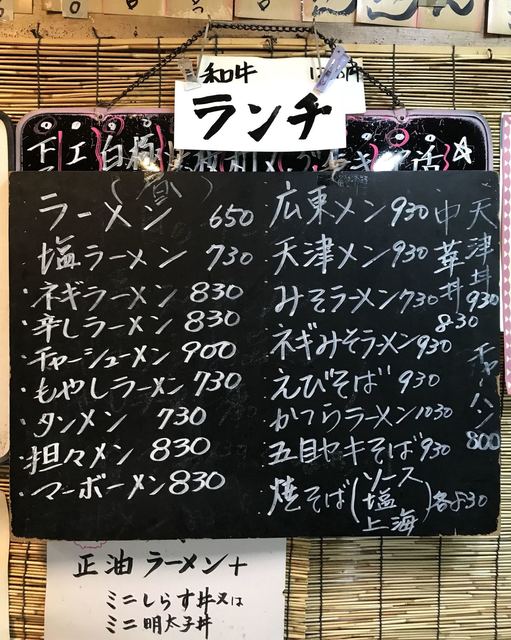 和牛
ランチ
(昼)
ラーメン 650
塩ラーメン 730
・ネギラーメン 830
・辛しラーメン 830
・チャーシューメン 900
・もやしラーメン 730
・タンメン 730
・担々メン 830
・マーボーメン 830
広東メン 930
・天津メン 930
・みそラーメン 730
・ネギみそラーメン 930
・えびそば 930
・かつらラーメン 1030
・五目ヤキそば 930
・焼そば(ソース 塩 上海)各830
中華丼 830
天津丼 930
チャーハン 800
正油ラーメン+
ミニしらす丼又は
ミニ明太子丼